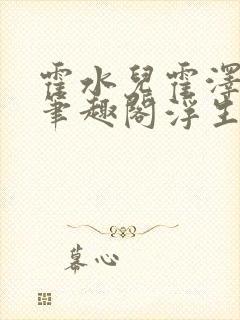 霍水兒霍澤
筆趣閣浮生
慕心